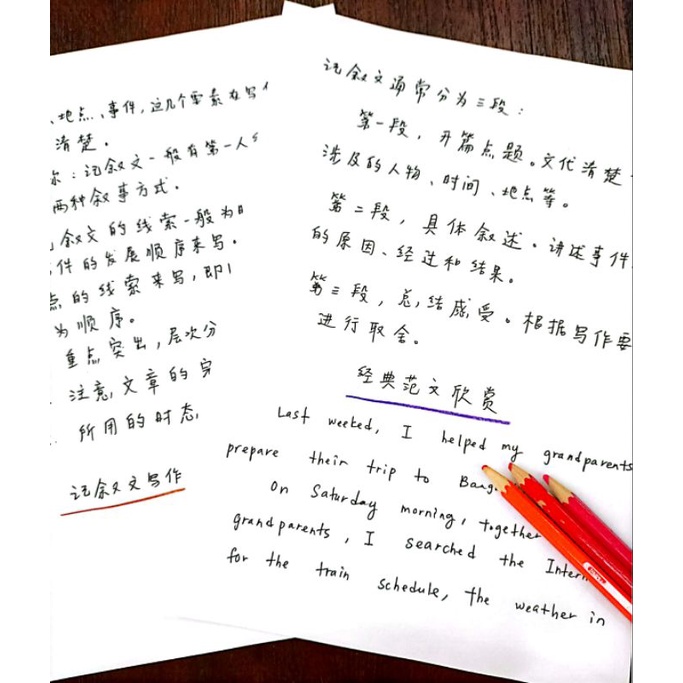 、地点、事件,这几个要素在写
清楚。
:记叙文一般有第一人
两种叙事方式。
叙文的线索一般为
件的发展顺序来写。
点的线索来写,即
为顺序。
重点突出,层次分
注意,文章的
所用的时态,
记叙文写作
记叙文通常分为三段:
第一段,开篇点题。交代清楚
涉及的人物、时间、地点等。
第二段,具体叙述。讲述事件
的原因、经过和结果。
第三段,总结感受。根据写作要
进行取舍。
经典范文欣赏
Last weeked, I helped my grandparents
prepare their trip to
On Saturday morning,
grandparents, I searched the
for the train schedule, the weather in